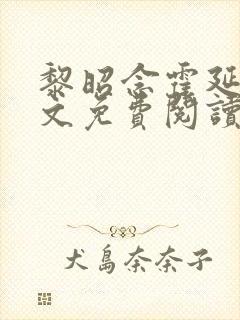 黎昭念霍延
文免費閱讀
犬島奈奈子